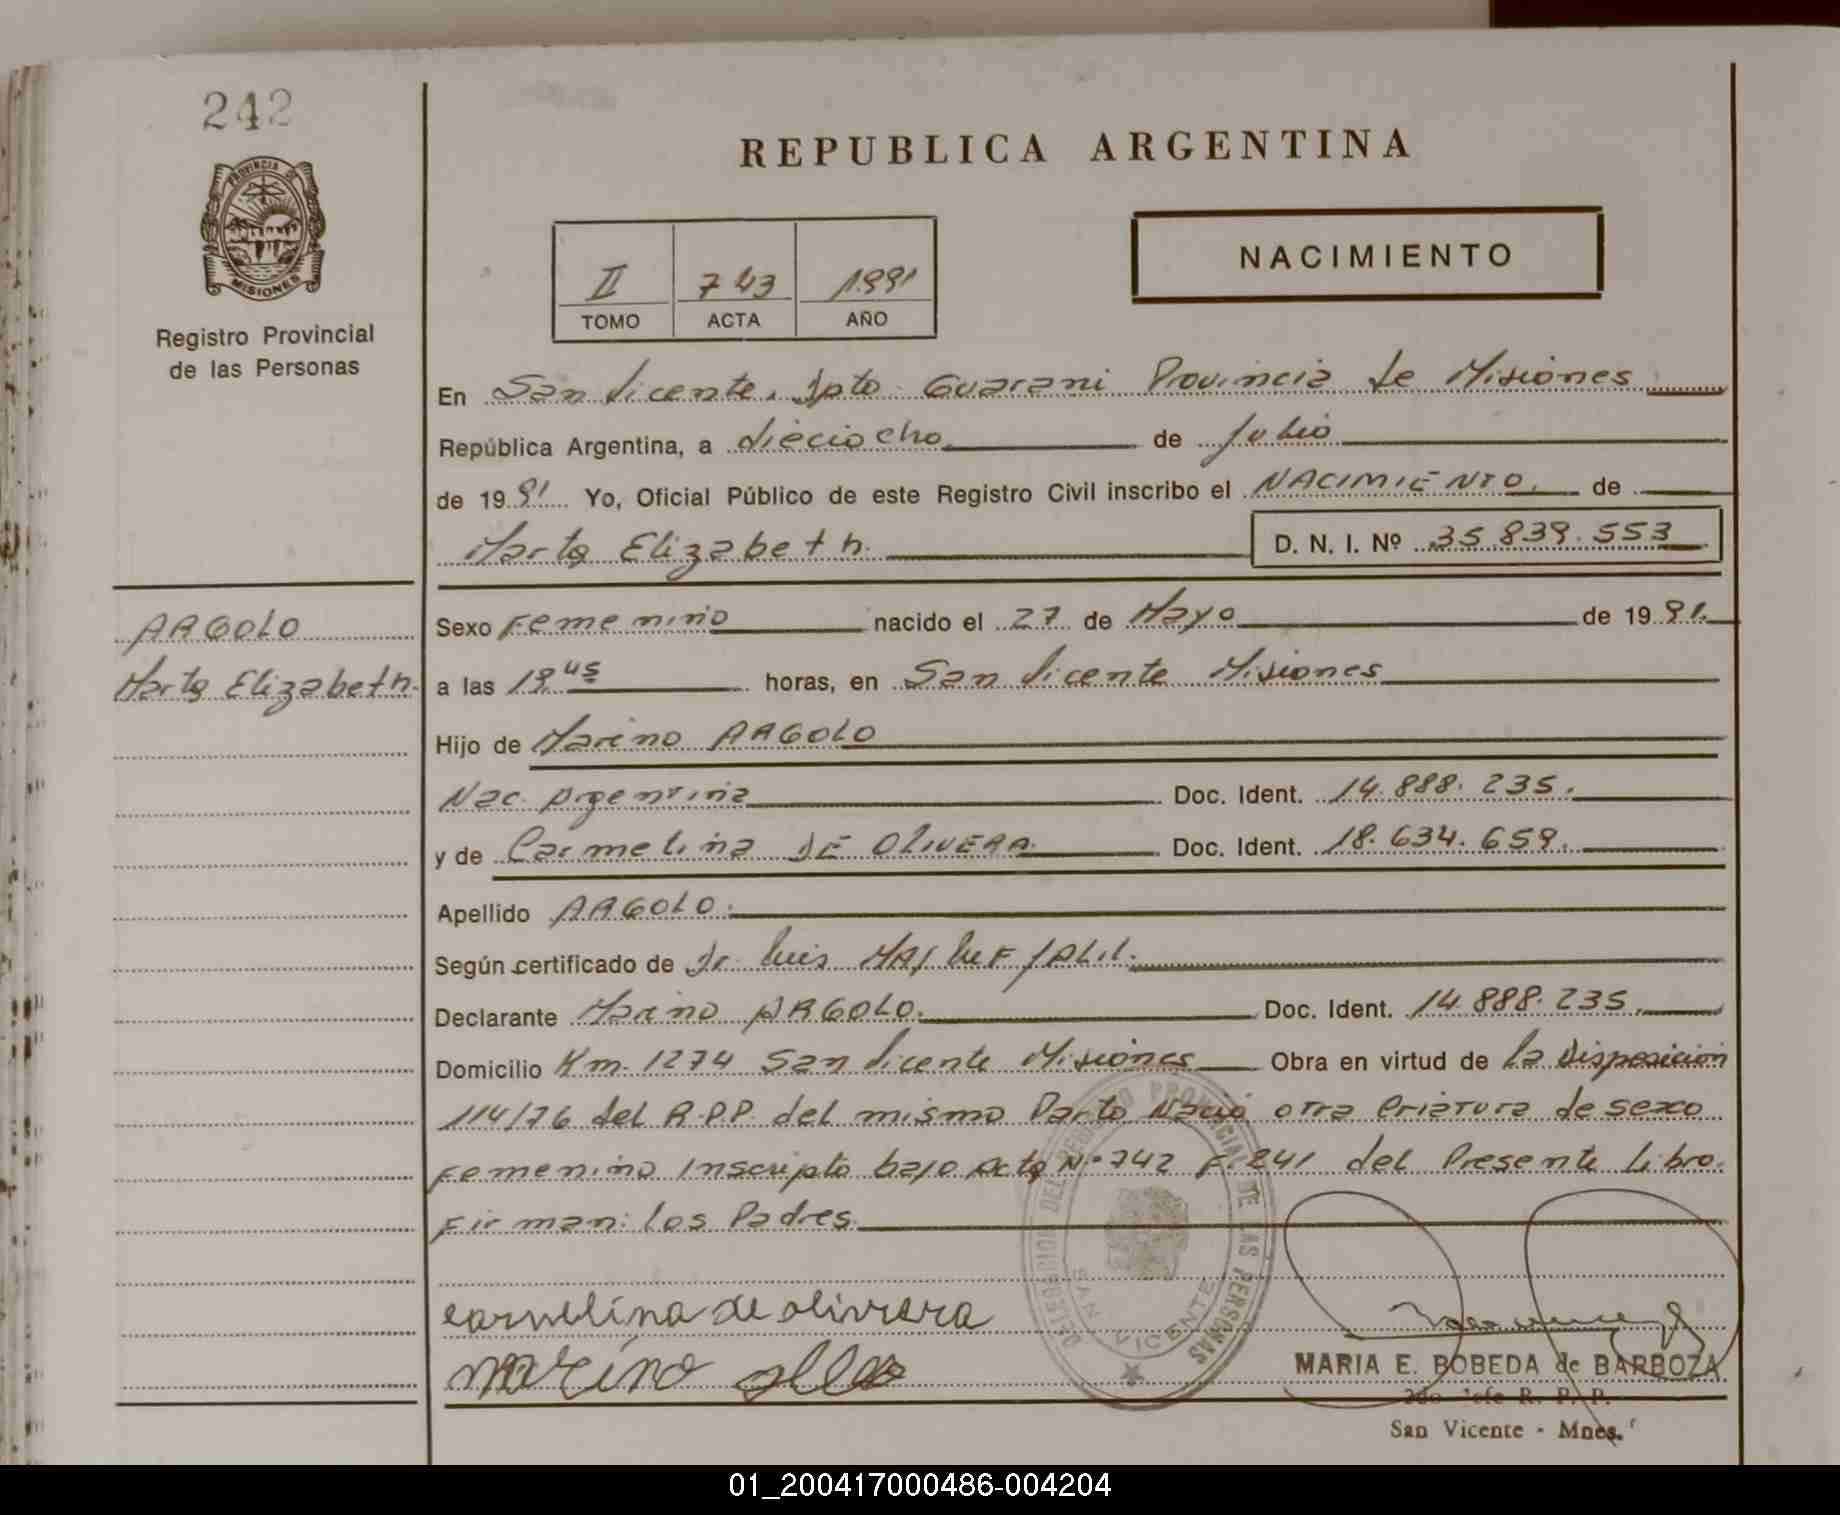 242
PROVINCIA DE
MISIONES
Registro Provincial
de las Personas
REPUBLICA ARGENTINA
II 743 1991
TOMO ACTA AÑO
NACIMIENTO
En San Vicente, Dpto Guarani Provincia de Misiones
República Argentina, a dieciocho de Julio
de 1991 Yo, Oficial Público de este Registro Civil inscribo el NACIMIENTO. de
Marta Elizabeth. D. N. I. Nº 35.839.553
ARGOLO
Marta Elizabeth.
Sexo Femenino nacido el 27 de Mayo de 1991.
a las 19.45 horas, en San Vicente Misiones
Hijo de Marino ARGOLO
Nac. Argentina Doc. Ident. 14.888.235.
y de Carmelina DE OLIVERA. Doc. Ident. 18.634.659.
Apellido ARGOLO.
Según certificado de Dr. Luis
Declarante Marino ARGOLO. Doc. Ident. 14.888.235.
Domicilio Km. 1274 San Vicente Misiones Obra en virtud de la Disposicion
114/76 del R.P.P. del mismo Parto Nació otra Criatura de sexo
Femenino Inscripta bajo Acta Nº 742 F. 241 del Presente Libro.
Firman: los Padres.
DELEGACION DEL REGISTRO PROVINCIAL DE LAS PERSONAS
SAN VICENTE
carmelina de olivera
marino
MARIA E. BOBEDA de BARBOZA
2do Jefe R. P. P.
San Vicente - Mnes.
01_200417000486-004204